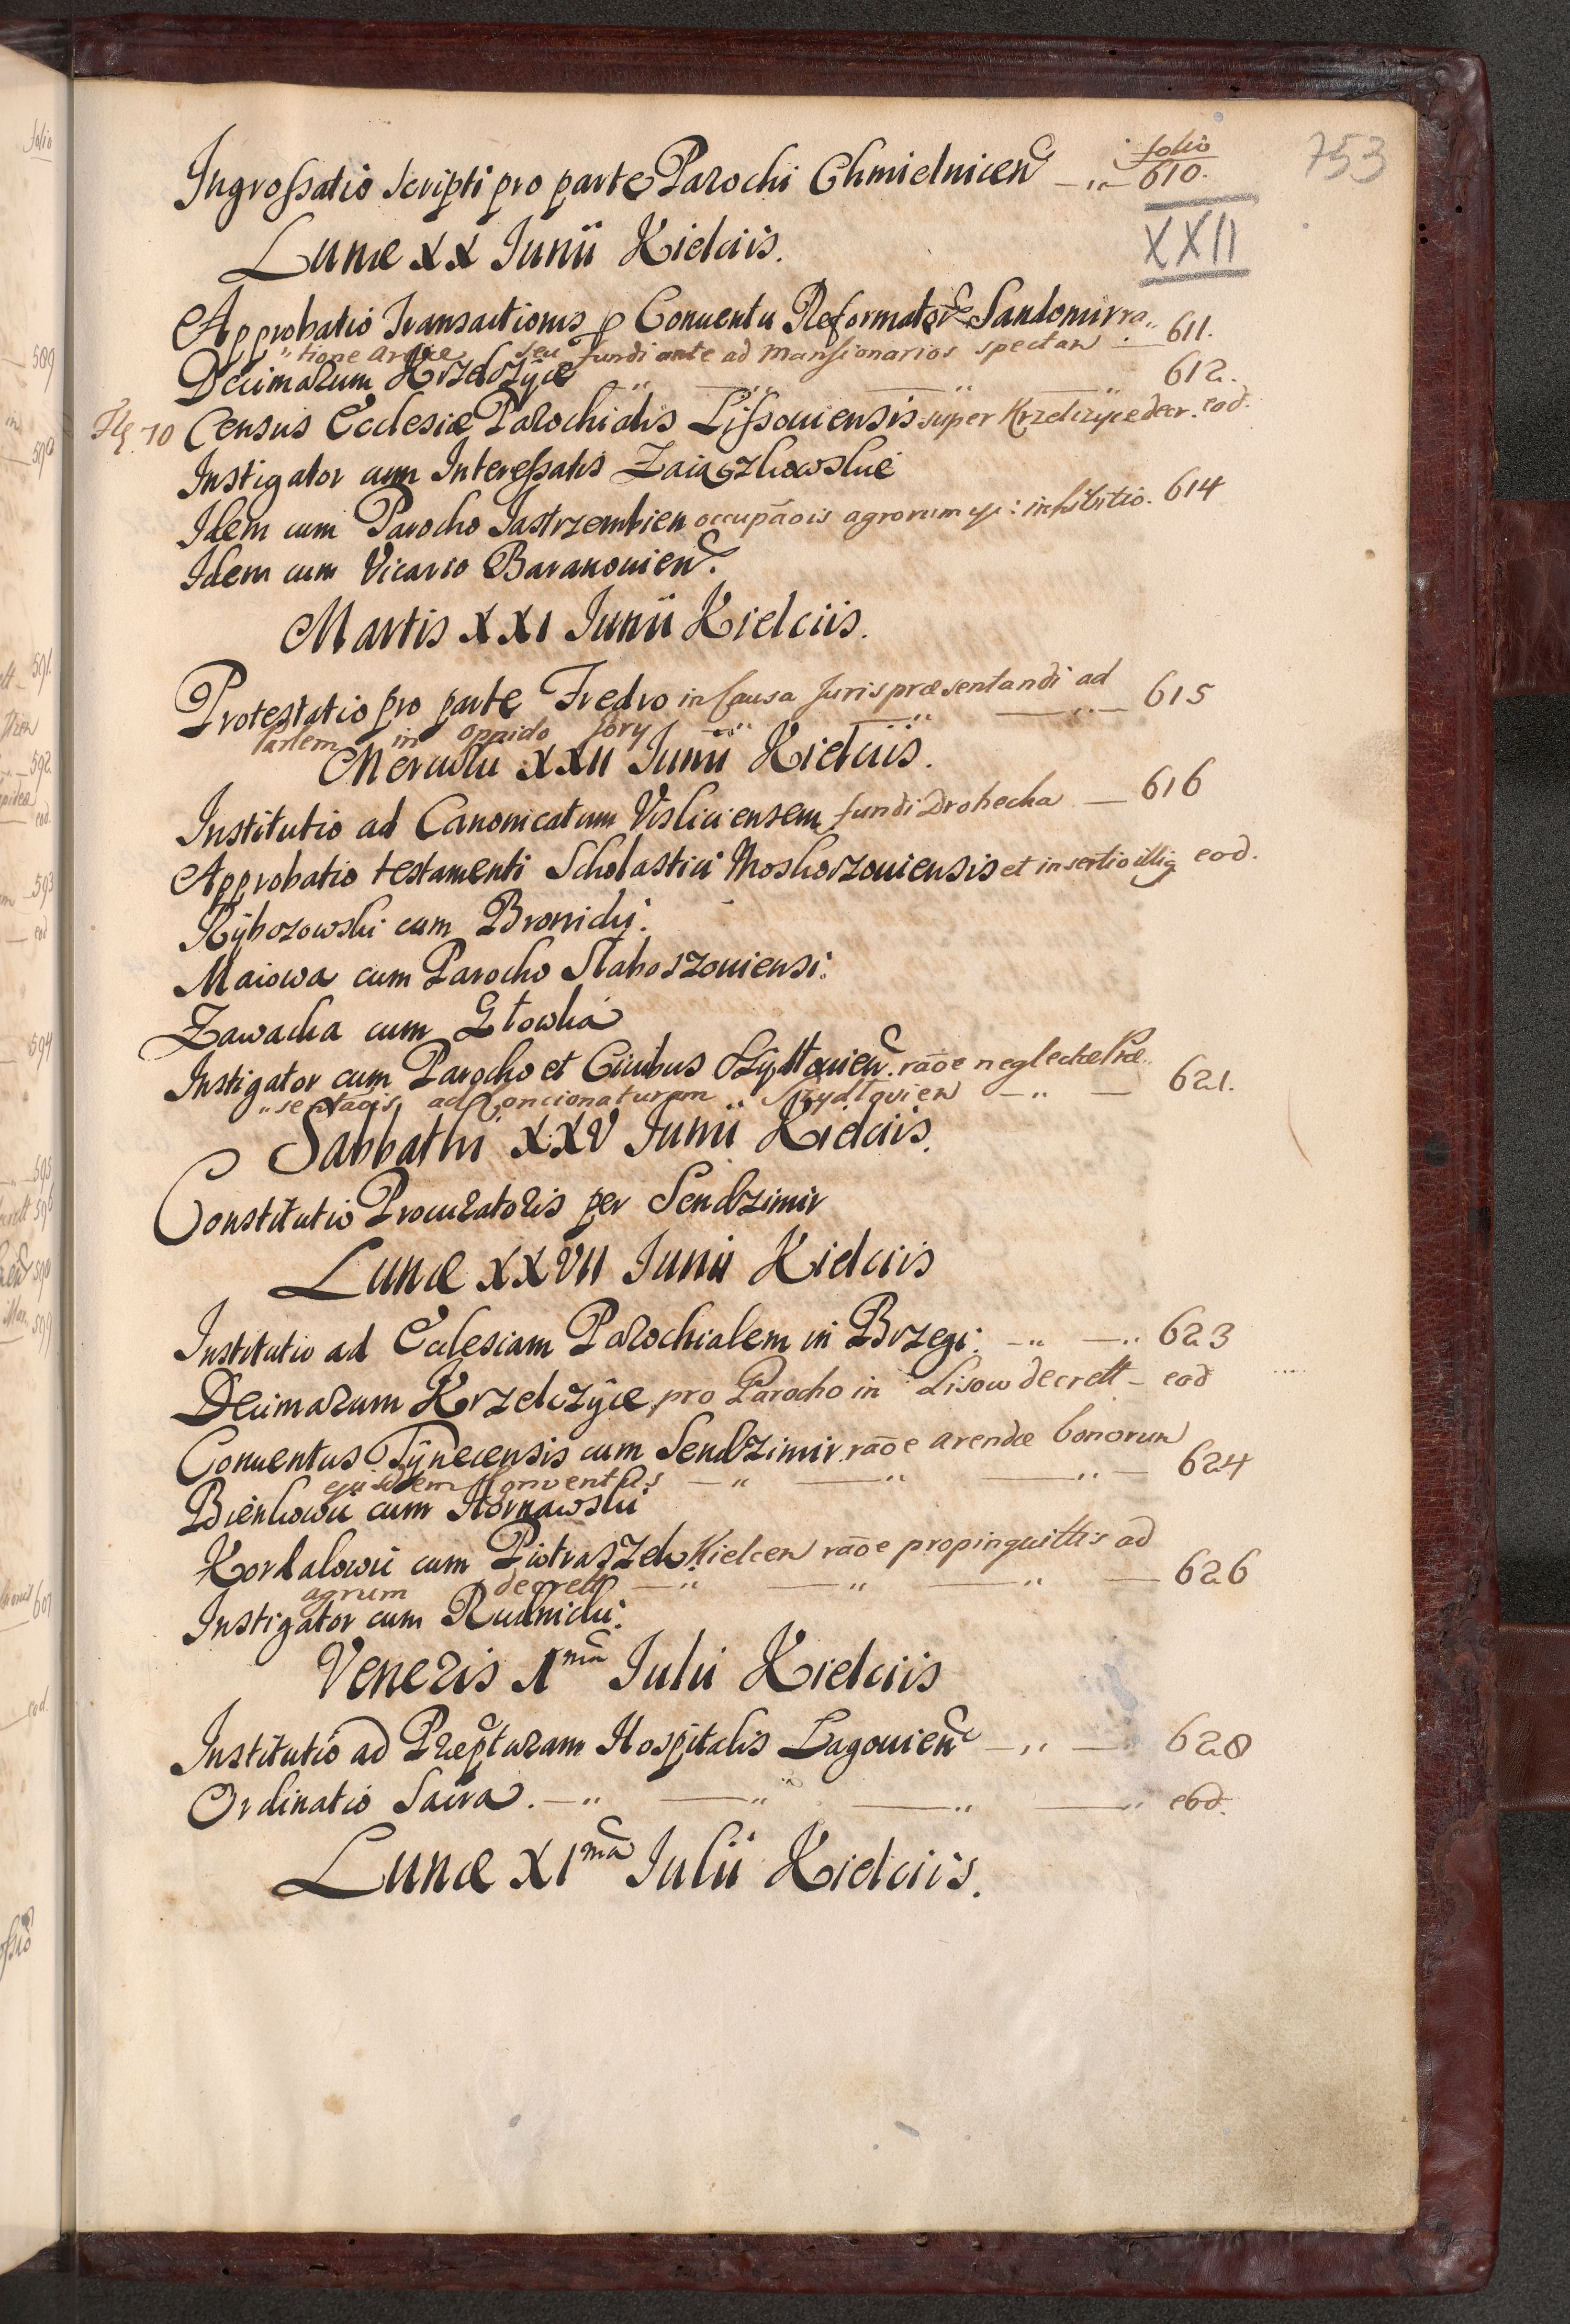 folio
753
Ingrossatio scripti pro parte Parochi Chmielnicen — " — 610.
XXII
Lunæ XX Junii Kielciis.
Approbatio Transactionis p Conventu Reformator Sandomir ra..
"tione areæ seu fundi ante ad Mansionarios spectan — 611.
Decimarum Krzelczÿce " — " — " — " 612.
Census Ecclesiæ Parochialis Lissouiensis super Krzelczyce decr. eod.
Instigator cum Interessatis Zaiączkowskie
Idem cum Parocho Jastrzembien occupaois agrorum inhibitio. 614
Idem cum Vicario Baranouien.
Martis XXI Junii Kielciis.
Protestatio pro parte Fredro in Causa Juris præsentandi ad
Partem in oppido Jory " — " — " — 615
Mercurii XXII Junii Kielciis.
Institutio ad Canonicatum Visliciensem fundi Drohecha — 616
Approbatio testamenti Scholastici Moskorzouiensis et insertio illig eod.
Rÿbozowski cum Bronicki.
Maiowa cum Parocho Slaboszouiensi.
Zawacka cum Głowka
Instigator cum Parocho et Ciuibus Szÿdłouien. raoe neglectæ Præ..
"sentaois ad Concionaturam Szydłouien — " — 621.
Sabbathi XXV Junii Kielciis.
Constitutio Procuratoris per Sendzimir
Lunæ XXVII Junii Kielciis
Institutio ad Ecclesiam Parochialem in Brzegi: — " — " 623
Decimarum Krzelczÿce pro Parocho in Lisow decrett — eod
Conuentus Tÿnecensis cum Sendzimir raoe arendæ bonorum
ejusdem Conventus — " — " — " — 624
Bienkowii cum Kornawski
Kordalowii cum Piotraszek Kielcen raoe propinquittis ad
agrum decrett — " — " — " — 626
Instigator cum Rudnicki.
Veneris 1ma Julii Kielciis
Institutio ad Præpturam Hospitalis Lagouien — " — 628
Ordinatio Sacra. — " — " — " — " eod.
Lunæ XIma Julii Kielciis.